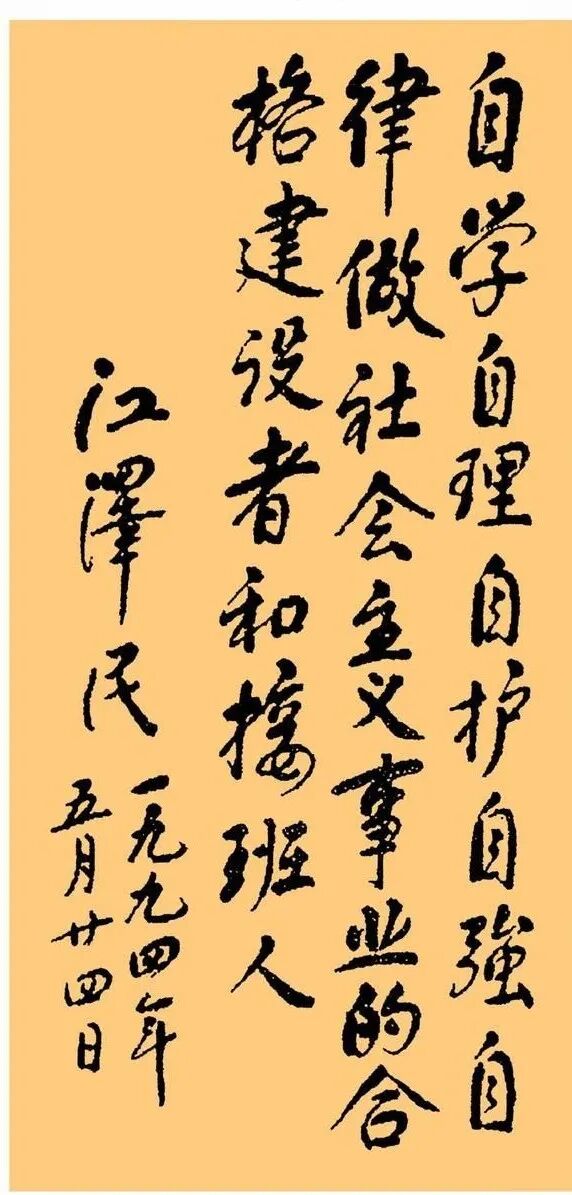 自学自理自护自强自
律做社会主义事业的合
格建设者和接班人
江泽民
一九九四年
五月廿四日